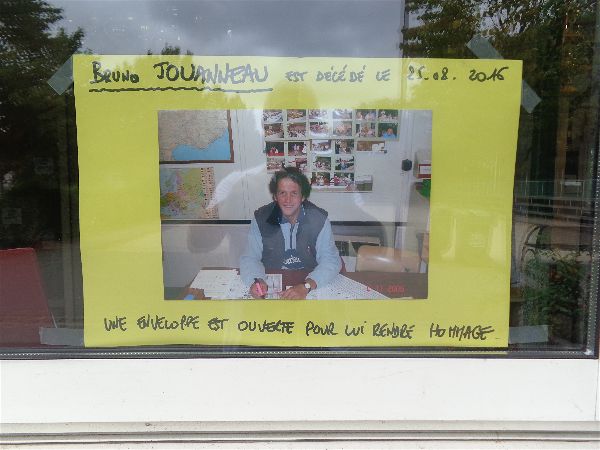 BRUNO JOUANNEAU EST DÉCÉDÉ LE 25.08.2016
UNE ENVELOPPE EST OUVERTE POUR LUI RENDRE HOMMAGE